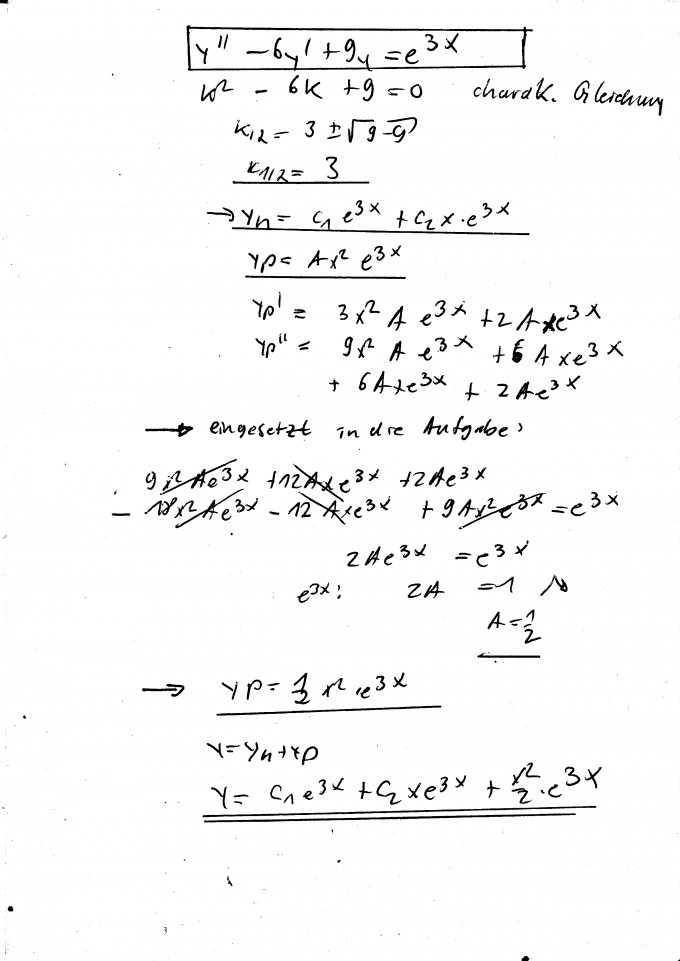 y'' - 6y' + 9y = e^3x
k² - 6k + 9 = 0 charak. Gleichung
k1,2 = 3 ± √9-9
k1/2 = 3
→ yh = C1 e^3x + C2 x·e^3x
yp = Ax² e^3x
yp' = 3x² A e^3x + 2Axe^3x
yp'' = 9x² A e^3x + 6 A xe^3x
+ 6Axe^3x + 2Ae^3x
→ eingesetzt in die Aufgabe:
9x²Ae^3x + 12Axe^3x + 2Ae^3x
- 18x²Ae^3x - 12Axe^3x + 9Ax²e^3x = e^3x
2Ae^3x = e^3x
e^3x: 2A = 1
A = 1/2
→ yp = 1/2 x² e^3x
y = yh + yp
y = C1 e^3x + C2 xe^3x + x²/2 · e^3x